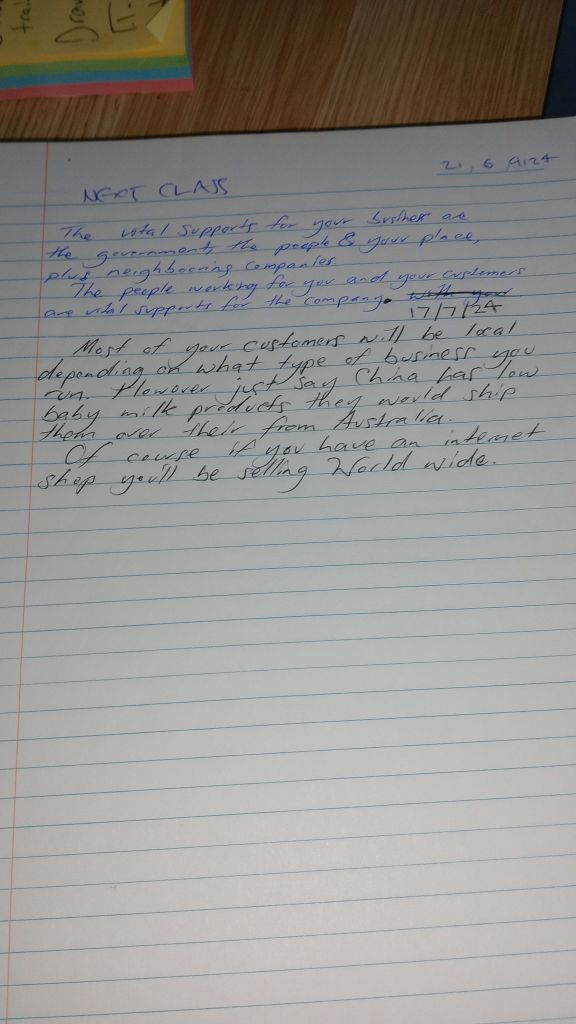 tra
Dra
[1.
21, 6
NEXT CLASS
The vital supports for your business are
the government, the people & your place,
plus neighbooring Companies
The people working for you and your customers
are vital supports for the company. with your
17/7/24
Most of your customers will be local
depending on what type of business you
run. However just say China has low
baby milk products they would ship
them over their from Australia.
Of course if you have an internet
shop you'll be selling World wide.